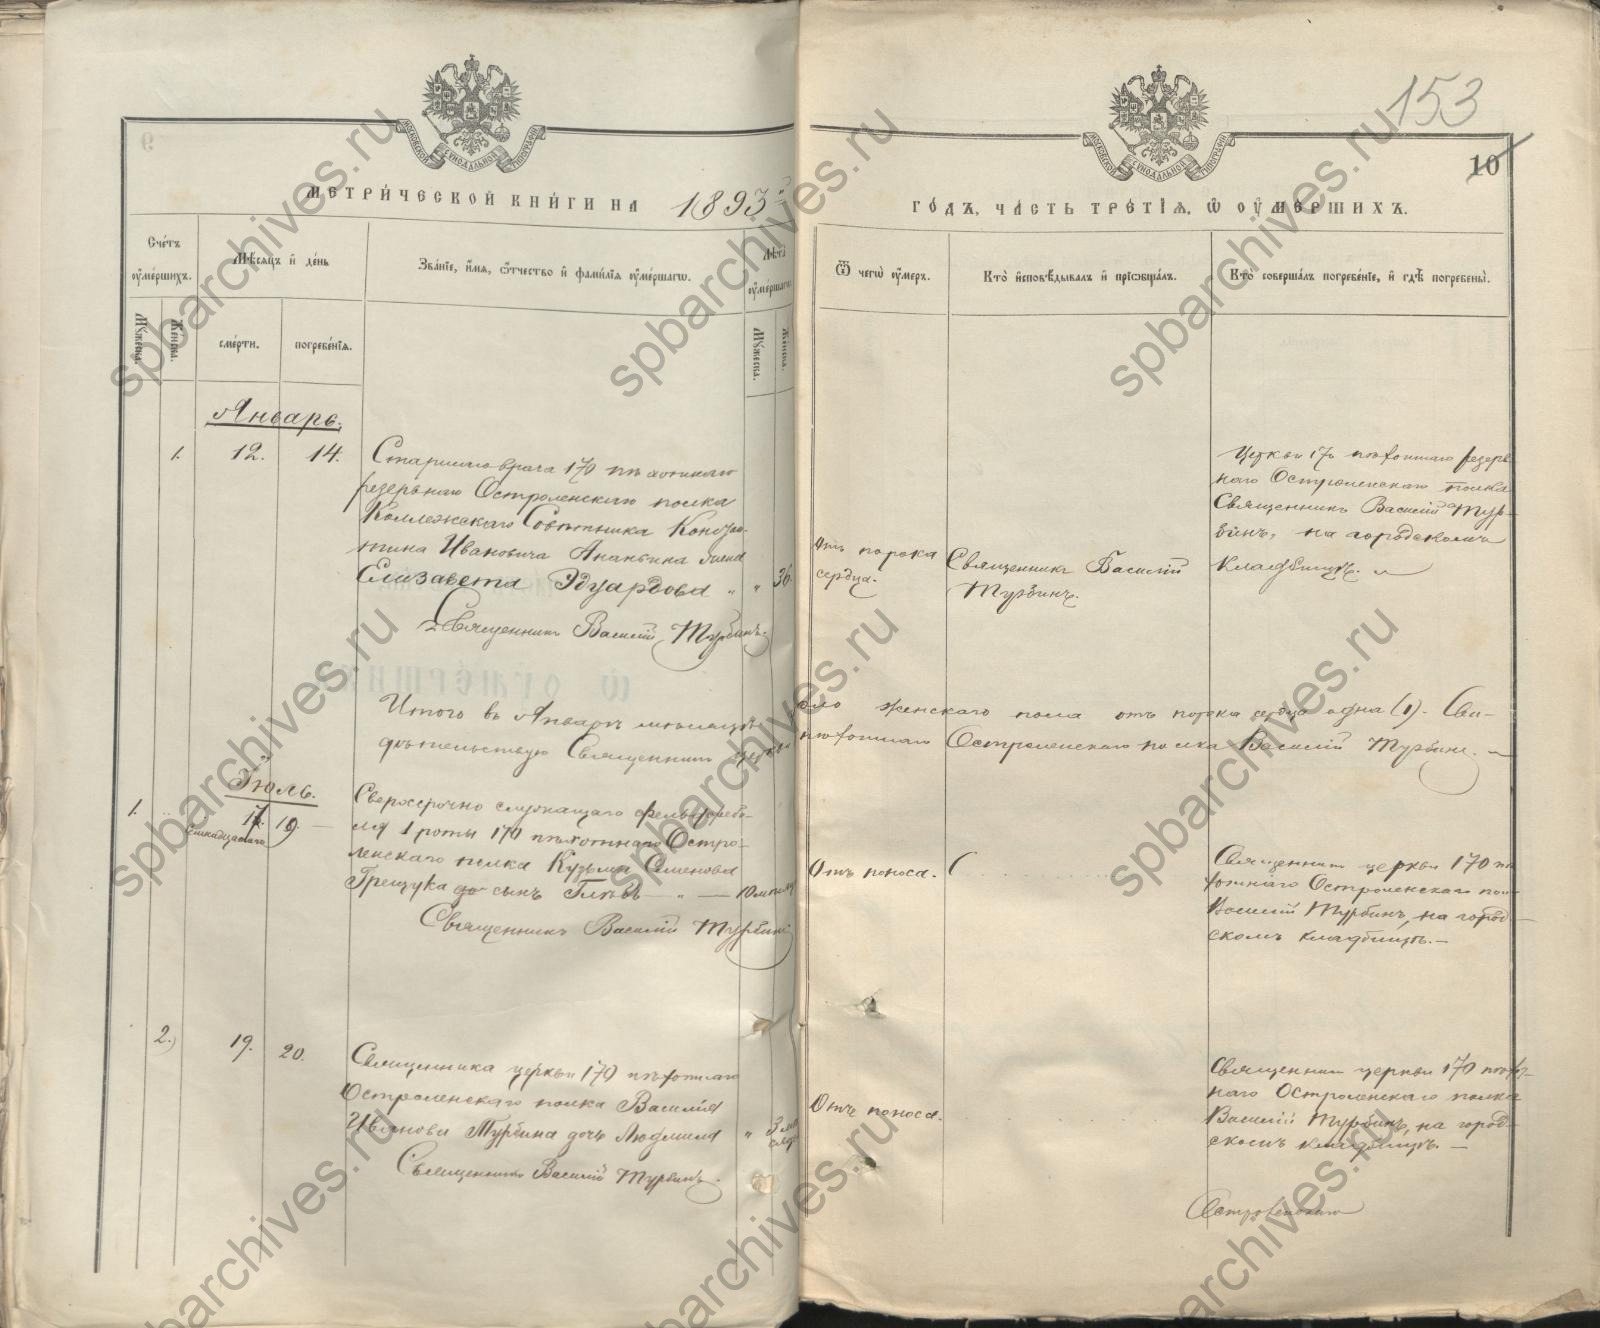 153
10
МОСКОВСКОЙ СѴНОДАЛЬНОЙ ТИПОГРАФІИ
МОСКОВСКОЙ СѴНОДАЛЬНОЙ ТИПОГРАФІИ
МЕТРИ́ЧЕСКОЙ КНИ́ГИ НА 1893й
ГО́ДЪ, ЧА́СТЬ ТРЕ́ТІЯ, Ѡ ОУМЕ́РШИХЪ.
Счетъ оуме́ршихъ.
Мѣсяцъ и день
Зва́ніе, имя, ѻтчество и фами́лія оуме́ршагѡ.
Лѣта оуме́ршагѡ
Ѿ чегѡ оумеръ.
Кто исповѣдывалъ и пріѡбща́лъ.
Кто соверша́лъ погребе́ніе, и гдѣ погребены.
Мужеска.
Женска.
сме́рти.
погребе́нія.
Мужеска.
Женска.
Январь.
1. 12. 14.
Старшаго врача 170 пѣхотнаго
резервнаго Остроленскаго полка
Коллежскаго Совѣтника Констан-
тина Ивановича Ананьина жена
Елизавета Эдуардова " " 36.
Священникъ Василій Турбинъ.
Отъ порока
сердца.
Священникъ Василій
Турбинъ.
Церкви 170 пѣхотнаго резерв-
наго Остроленскаго полка
Священникъ Василій Тур-
бинъ, на городскомъ
кладбищѣ.
Итого въ Январѣ мѣсяцѣ
женскаго пола отъ порока сердца одна (1). Сви-
дѣтельствую Священникъ церкви
пѣхотнаго Остроленскаго полка Василій Турбинъ.
Іюль.
1. 17. 19.
Семнадцатаго
Сверхсрочно служащаго фельдфебе-
ля 1 роты 170 пѣхотнаго Остро-
ленскаго полка Кузьмы Семенова
Грещука сынъ Глѣбъ — " — 10
Священникъ Василій Турбинъ
Отъ поноса.
Священникъ церкви 170 пѣ-
хотнаго Остроленскаго пол-
Василій Турбинъ, на город-
скомъ кладбищѣ.—
2. 19. 20.
Священника церкви 170 пѣхотнаго
Остроленскаго полка Василія
Иванова Турбина дочь Людмила " 3
Священникъ Василій Турбинъ.
Отъ поноса.
Священникъ церкви 170 пѣхот-
наго Остроленскаго полка
Василій Турбинъ, на город-
скомъ кладбищѣ.—
Остроленскаго
spbarchives.ru
spbarchives.ru
spbarchives.ru
spbarchives.ru
spbarchives.ru
spbarchives.ru
spbarchives.ru
spbarchives.ru
spbarchives.ru